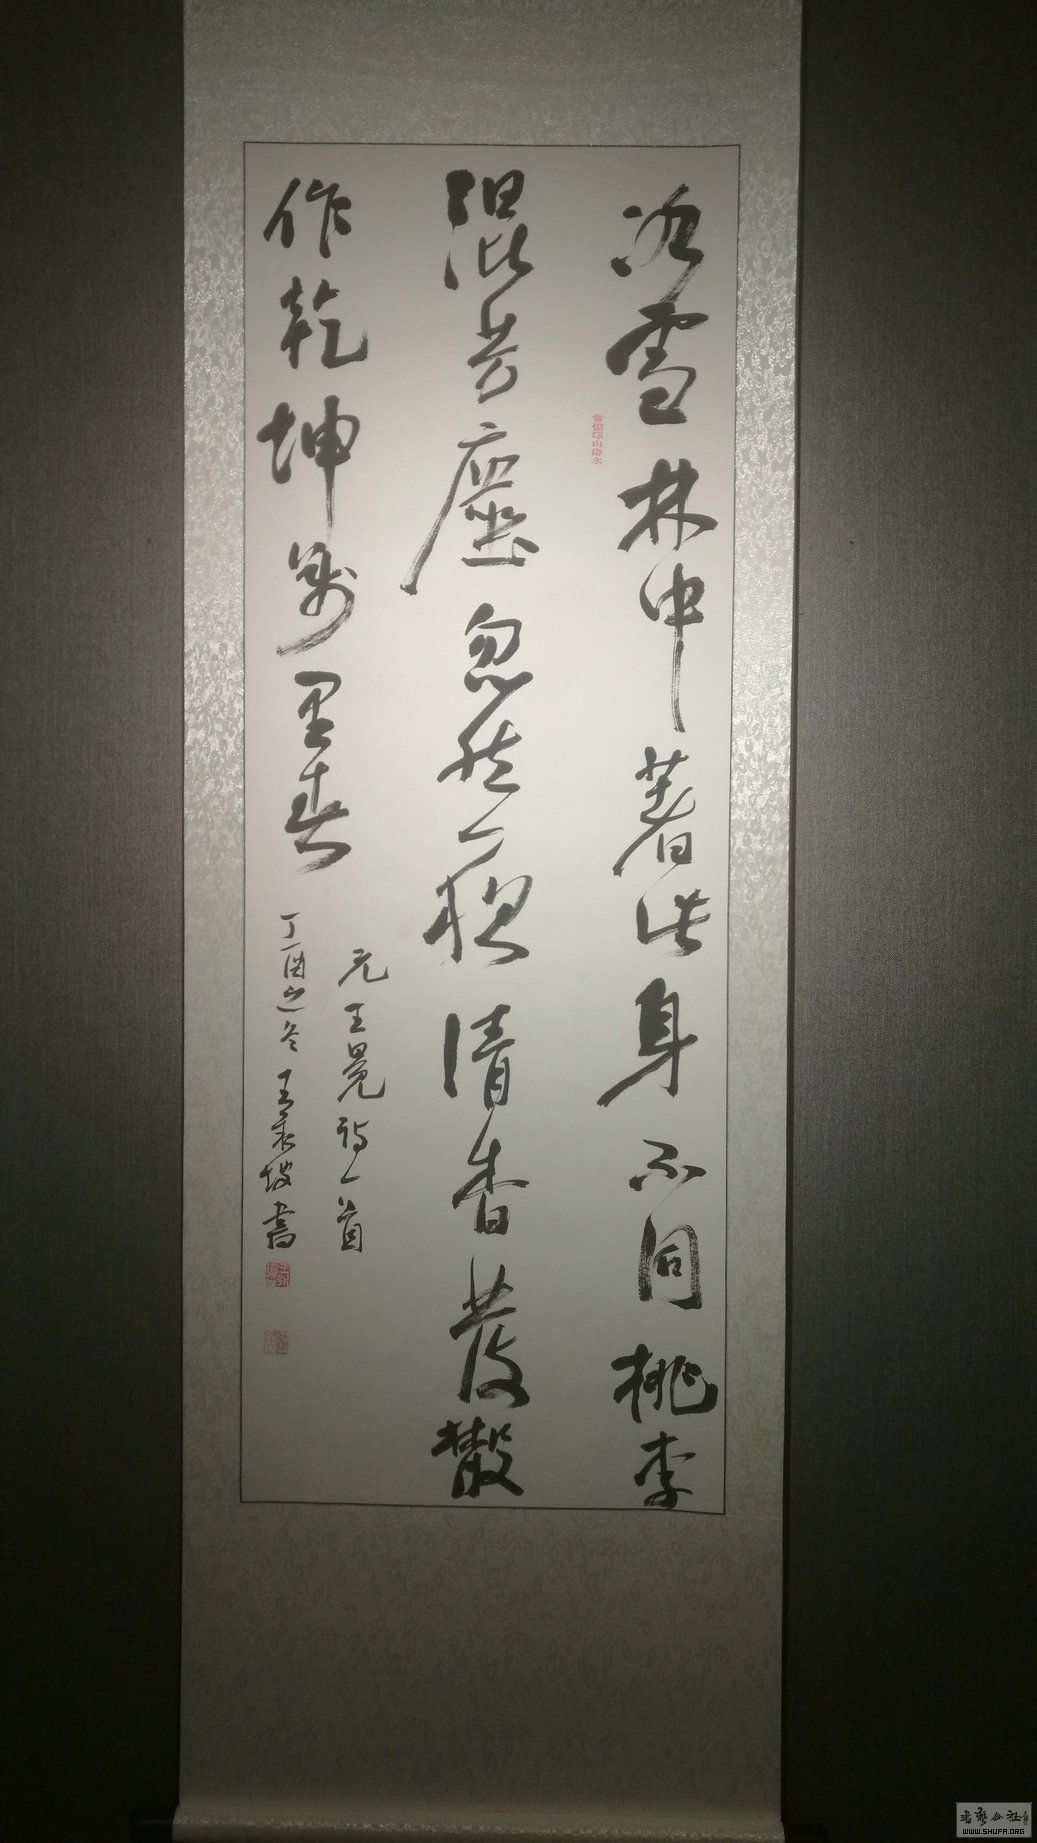 冰雪林中著此身不同桃李
混芳塵忽然一夜清香發散
作乾坤萬里春
元王冕詩一首
丁酉之冬王坡書
常憶邙山洛水
书艺公社
WWW.SHUFA.ORG